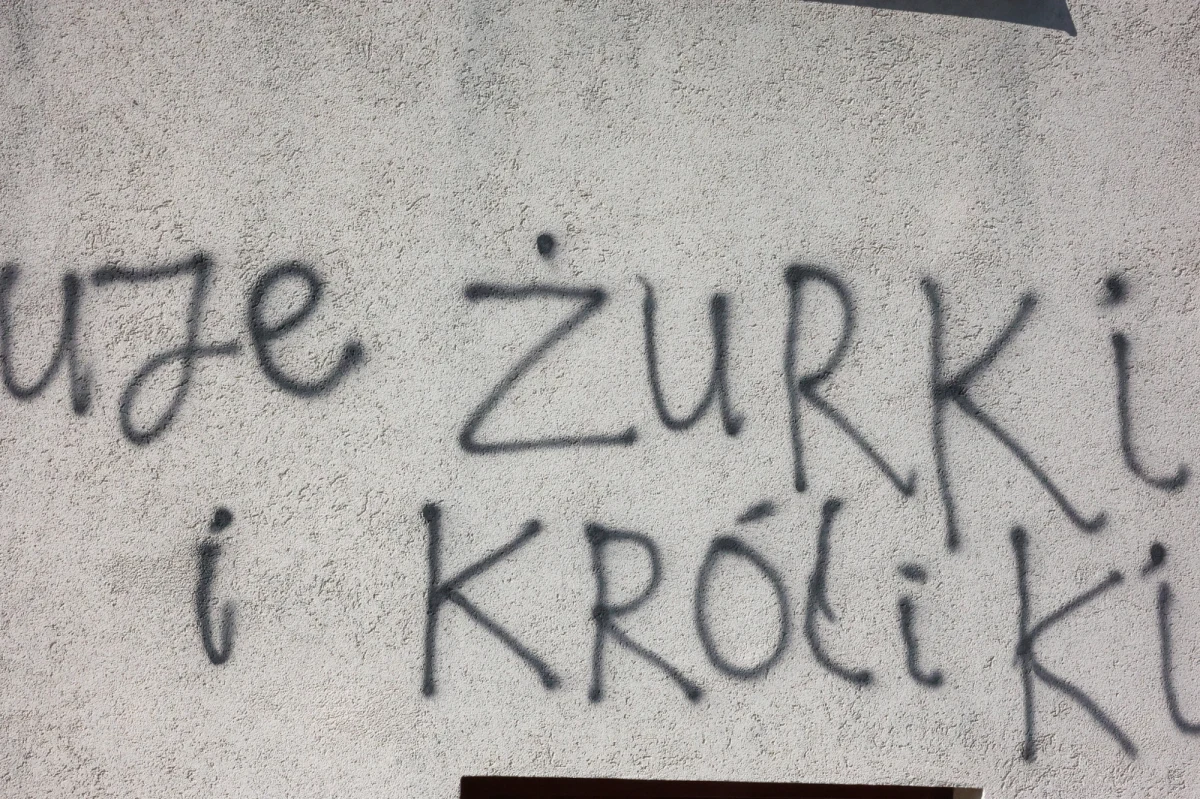 uje ŻURKi
i KRÓliKi